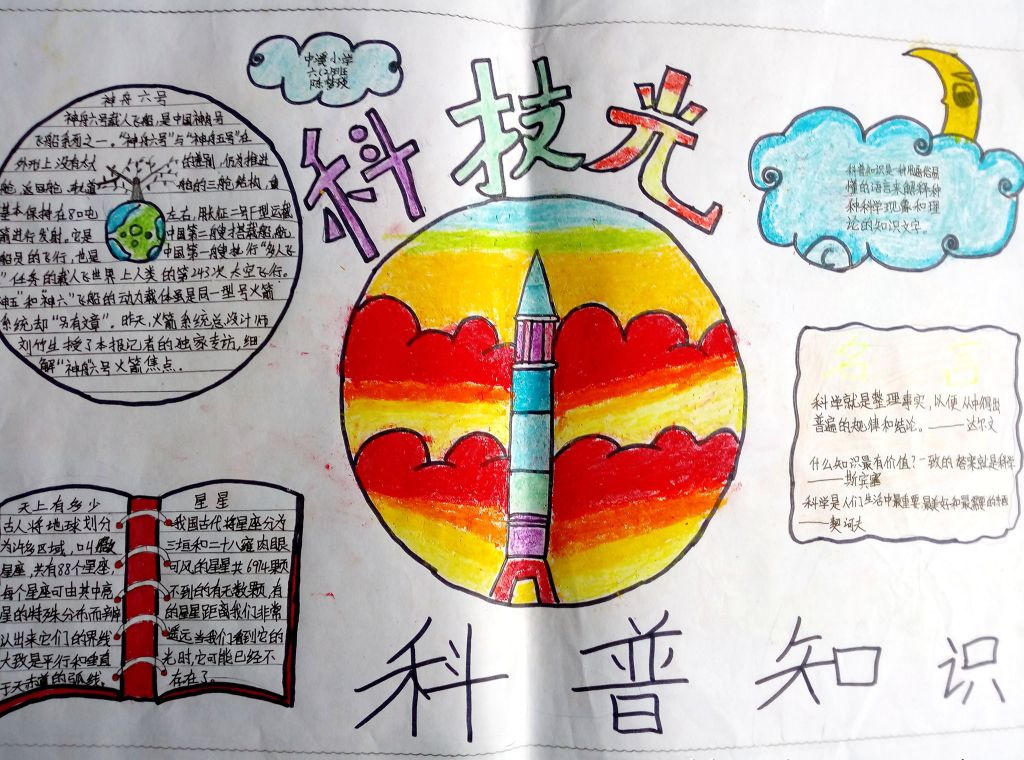 中溪小学
六(2)班
陈梦瑛
科技光
神舟六号
神舟六号载人飞船,是中国神舟号
飞船系列之一。"神舟六号"与"神舟五号"在
外形上没有大的差别,仍为推进
舱、返回舱、轨道舱的三舱结构,重
基本保持在8吨左右,用长征二号F型运载
箭进行发射。它是中国第二艘搭载航
船员的飞行,也是中国第一艘执行"多人飞
"任务的载人飞世界上人类的第243次太空飞行。
神五"和"神六"飞船的动力载体虽是同一型号火箭
系统却"另有文章"。昨天,火箭系统总设计师
刘竹生接了本报记者的独家专访,细
解"神舟六号火箭焦点。
科普知识是一种用通俗易
懂的语言来解释种
种科学现象和理
论的知识文字。
名言
科学就是整理事实,以便从中得出
普遍的规律和结论。——达尔文
什么知识最有价值?一致的答案就是科学
——斯宾塞
科学是人们生活中最重要、最美好和最需要的
——契诃夫
天上有多少
古人将地球划分
为许多区域,叫做
星座,共有88个星座,
每个星座可由其中亮
星的特殊分布而辨
认出来它们的界线
大致是平行和垂直
于天赤道的弧线。
星星
我国古代将星座分为
三垣和二十八宿肉眼
可见的星星共6974颗
不到的有无数颗,有
的星星距离我们非常
遥远当我们看到它的
光时,它可能已经不
存在了。
科普知识